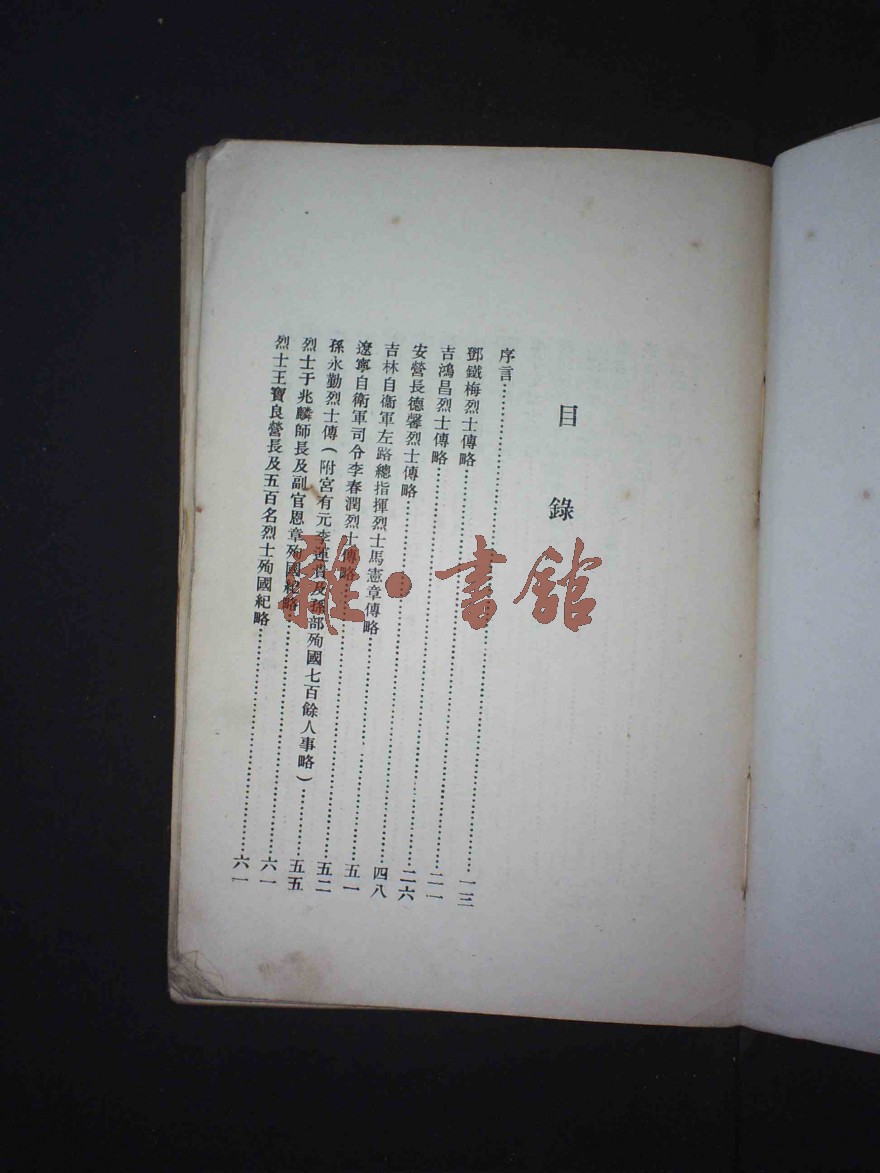 目錄
序言……一三
鄧鐵梅烈士傳略……二一
吉鴻昌烈士傳略……二六
安營長德馨烈士傳略……四八
吉林自衞軍左路總指揮烈士馬憲章傳略……五一
遼寧自衞軍司令李春潤烈士傳略……五二
孫永勤烈士傳(附宮有元李連貴及孫部殉國七百餘人事略)……五五
烈士于兆麟師長及副官恩章殉國紀略……六一
烈士王寶良營長及五百名烈士殉國紀略……六一
雅·書館